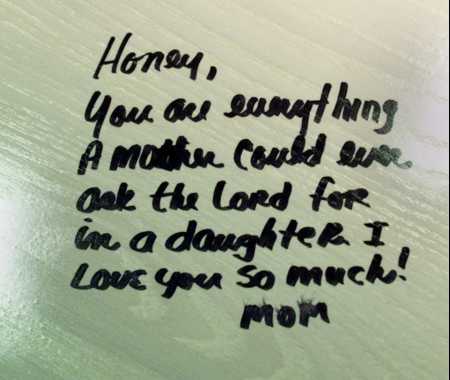 Honey,
You are everything
A mother could ever
ask the Lord for
in a daughter. I
Love you so much!
MOM